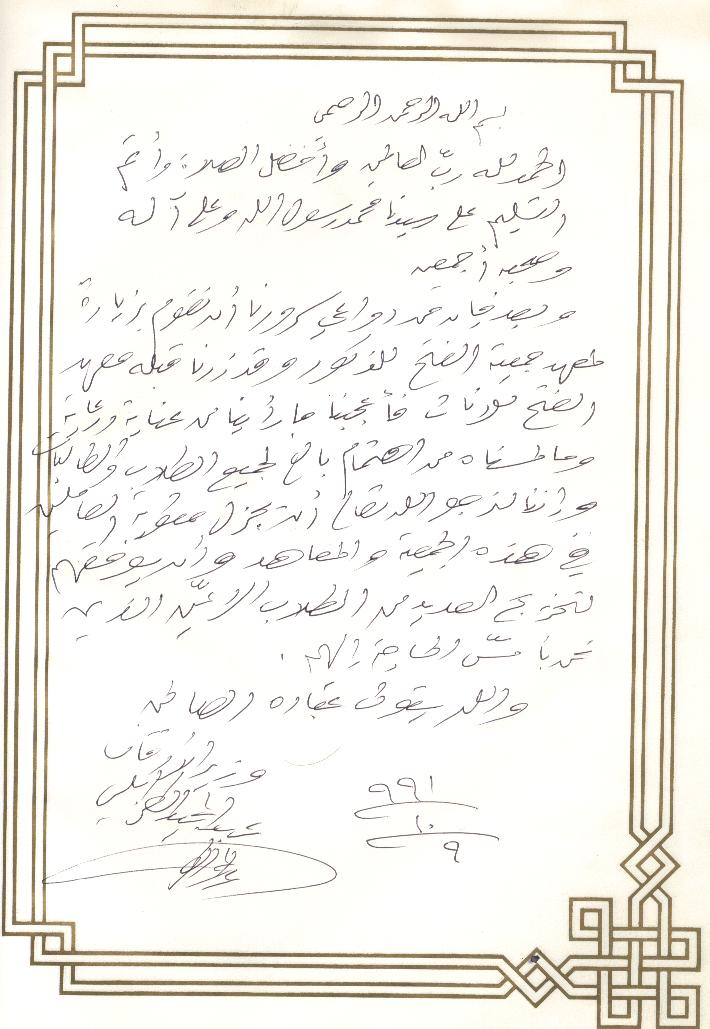 بسم الله الرحمن الرحيم
الحمد لله ربّ العالمين وأفضل الصلاة وأتم
التسليم على سيدنا محمد رسول الله وعلى آله
وصحبه أجمعين
وبعد فإن من دواعي سرورنا أن نقوم بزيارة
لمعهد جمعية الفتح للذكور وقد زرنا قبله معهد
الفتح للإناث فأعجبنا ما رأينا من عناية ورعاية
وما لمسناه من اهتمام بالغ لجميع الطلاب والطالبات
وإننا لنرجو الله تعالى أن يجزل مثوبة العاملين
في هذه الجمعية والمعاهد وأن يوفقهم
لتخريج العديد من الطلاب الذين
نحن بأمسّ الحاجة إليهم.
والله يتولى عباده الصالحين
وزير الأوقاف
عبد المجيد الطرابلسي
٩٩١
١٠
٩